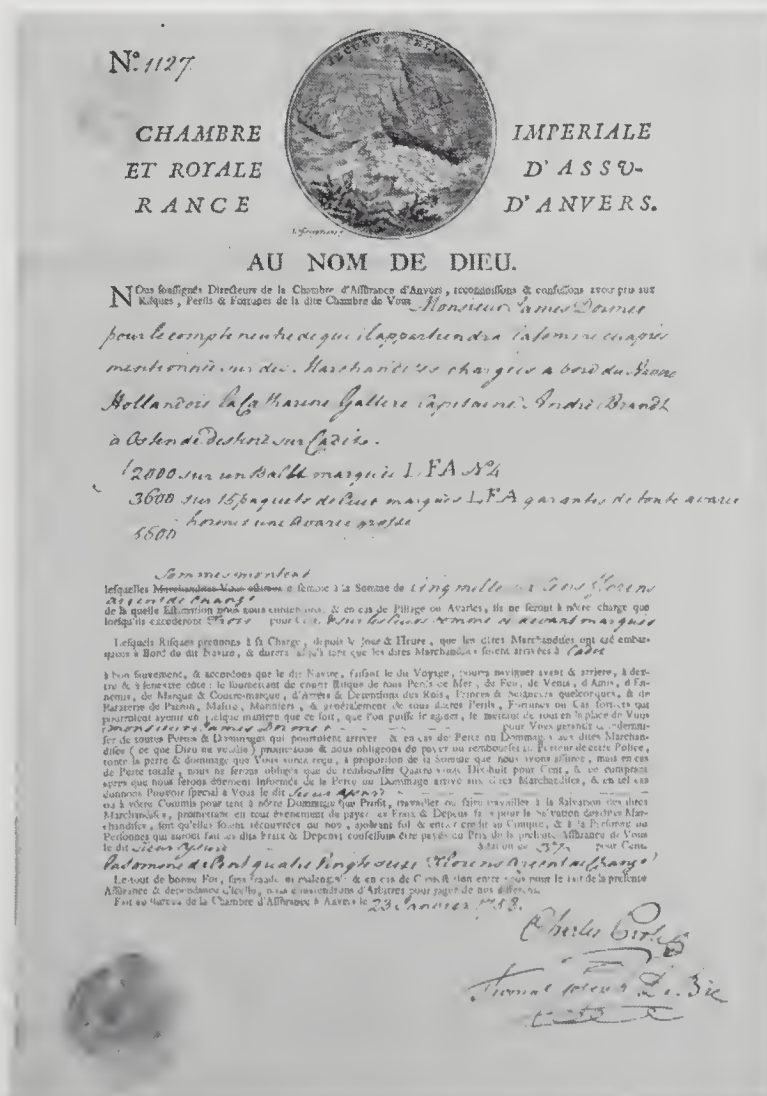 N.o 1127.
SECURUS
CHAMBRE IMPERIALE
ET ROYALE D'ASSU-
RANCE D'ANVERS.
AU NOM DE DIEU.
NOus soussignés Directeurs de la Chambre d'Assurance d'Anvers, reconnoissons & confessons avoir pris aux
Risques, Perils & Fortunes de la dite Chambre de Vous Monsieur James Dormer
pour le compte de qui il appartiendra la somme cy après
mentionnée sur des Marchandises chargées a bord du Navire
Hollandois la Catharine Gallere Capitaine André Brandt
à Ostende destiné sur Cadix.
f2000 sur un Balle marquée L FA N4
3600 sur 15 paquets de marqués L.FA garantes de toute avarie
hormis une Avarie grosse
5600
Sommes montent
lesquelles Marchandises Vous ensemble à la Somme de cinq mille six Cens florens
argent de change
de la quelle Estimation nous nous contentons, & en cas de Pillage ou Avaries, ils ne seront à nôtre charge que
lorsqu'ils excederont Trois pour Cent, sur les comme ci devant marqués
Lesquels Risques prenons à sa Charge, depuis le Jour & Heure, que les dites Marchandises ont été embar-
quées à Bord du dit Navire, & durera jusqu'à tant que les dites Marchandises soient arrivées à Cadix
à bon sauvement, & accordons que le dit Navire, faisant le dit Voyage, pourra naviguer avant & arriere, à dex-
tre & à senestre côté: le soumettant de courir Risque de tous Perils de Mer, de Feu, de Vents, d'Amis, d'En-
nemis, de Marque & Contre-marque, d'Arrêts & Detentions des Rois, Princes & Seigneurs quelconques, & de
Baraterie de Patron, Maître, Mariniers, & généralement de tous autres Perils, Fortunes ou Cas fortuits qui
pourroient avenir en quelque maniere que ce soit, que l'on puisse imaginer, se mettant de tout en la place de Vous
Monsieur James Dormer pour Vous garantir & indemni-
ser de toutes Pertes & Dommages qui pourroient arriver & en cas de Perte ou Dommage aux dites Marchan-
dises (ce que Dieu ne veuille) promettons & nous obligeons de payer ou rembourser au Porteur de cette Police,
toute la perte & dommage que Vous aurez reçu, à proportion de la Somme que nous avons assuré, mais en cas
de Perte totale, nous ne serons obligés que de rembourser Quatre vingt Dix-huit pour Cent, & ce comptant
après que nous serons dûement Informés de la Perte ou Dommage arrivé aux dites Marchandises, & en tel cas
donnons Pouvoir special à Vous le dit Sieur
ou à vôtre Commis pour tant à nôtre Dommage que Profit, travailler ou faire travailler à la Salvation des dites
Marchandises, promettant en tout évenement de payer les Fraix & Depens faits pour la Salvation desdites Mar-
chandises, soit qu'elles soient récouvrées ou non, ajoutant foi & entier credit au Compte, & à la Personne ou
Personnes qui auront fait les dits Fraix & Depens confessons être payés du Prix de la presente Assurance de Vous
le dit Sieur à raison de pour Cent.
la somme de Cent quatre vingt seize Florens Argent de Change
Le tout de bonne Foi, sans fraude ni malengin: & en cas de Contestion entre nous pour le fait de la presente
Assurance & dependance d'icelle, nous consentons d'Arbitres pour juger de nos differens.
Fait au Bureau de la Chambre d'Assurance à Anvers le 23 Janvier 1758.
Charles
De Bie